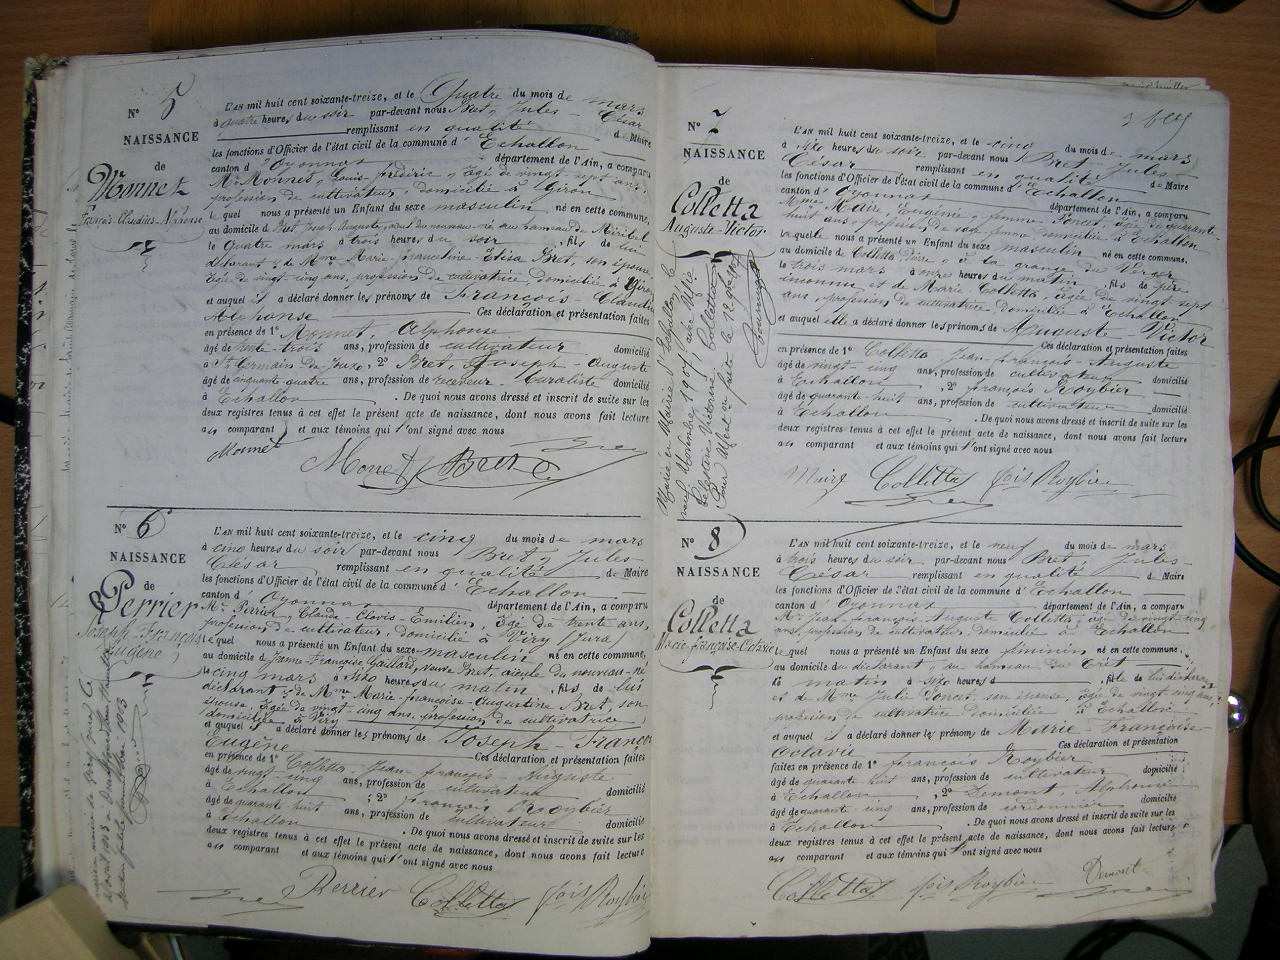 N° 5
NAISSANCE
de
Monnet
François Claudius Alphonse
L'AN mil huit cent soixante-treize, et le Quatre du mois de mars
à quatre heures du soir par-devant nous Bret, Jules César
remplissant en qualité de Maire
les fonctions d'Officier de l'état civil de la commune d'Echallon
canton d'Oyonnax département de l'Ain, a comparu
Mr Monnet, Louis frédéric, âgé de vingt sept ans,
profession de cultivateur, domicilié à Giron
lequel nous a présenté un Enfant du sexe masculin né en cette commune,
au domicile de Bret, Joseph Auguste, au hameau de
le Quatre mars à trois heures du soir, fils de lui
déclarant & de Mme Marie françoise Elisa Bret, son épouse
âgée de vingt cinq ans, profession de cultivatrice, domiciliée à Giron
et auquel il a déclaré donner les prénoms de François-Claudius
Alphonse Ces déclaration et présentation faites
en présence de 1° Monnet Alphonse
âgé de trente-trois ans, profession de cultivateur domicilié
à St Germain de Joux, 2° Bret, Joseph-Auguste
âgé de cinquante quatre ans, profession de receveur-buraliste domicilié
à Echallon . De quoi nous avons dressé et inscrit de suite sur les
deux registres tenus à cet effet le présent acte de naissance, dont nous avons fait lecture
aux comparant et aux témoins qui l'ont signé avec nous
Monnet
Monnet Bret
N° 6
NAISSANCE
de
Perrier
Joseph François
Eugène
L'AN mil huit cent soixante-treize, et le cinq du mois de mars
à cinq heures du soir par-devant nous Bret, Jules
César remplissant en qualité de Maire
les fonctions d'Officier de l'état civil de la commune d'Echallon
canton d'Oyonnax département de l'Ain, a comparu
Mr Perrier, Claude-Clovis-Emilien, âgé de trente ans,
profession de cultivateur, domicilié à Viry (Jura)
lequel nous a présenté un Enfant du sexe masculin né en cette commune,
au domicile de Jeanne-Françoise Gaillard, veuve Bret, aïeule du nouveau-né
le cinq mars à six heures du matin, fils de lui
déclarant & de Mme Marie-françoise-Augustine Bret, son
épouse, âgée de vingt-cinq ans, profession de cultivatrice
domiciliée à Viry
et auquel il a déclaré donner les prénoms de Joseph-François
Eugène Ces déclaration et présentation faites
en présence de 1° Colletta Jean-françois-Auguste
âgé de vingt-cinq ans, profession de cultivateur domicilié
à Echallon ; 2° François Roybier
âgé de quarante huit ans, profession de cultivateur domicilié
à Echallon . De quoi nous avons dressé et inscrit de suite sur les
deux registres tenus à cet effet le présent acte de naissance, dont nous avons fait lecture
au comparant et aux témoins qui l'ont signé avec nous
Perrier Colletta fois Roybier
N° 7
NAISSANCE
de
Colletta
Auguste-Victor
Marié en Mairie d'Echallon le
neuf Novembre 1901 avec Melle
Célestine Victorine Colletta
L'AN mil huit cent soixante-treize, et le cinq du mois de mars
à six heures du soir par-devant nous Bret Jules
César remplissant en qualité de Maire
les fonctions d'Officier de l'état civil de la commune d'Echallon
canton d'Oyonnax département de l'Ain, a comparu
Mme Maire Eugénie, femme Poncet, âgée de quarante-
huit ans, profession de sage femme domiciliée à Echallon
laquelle nous a présenté un Enfant du sexe masculin né en cette commune,
au domicile de Colletta Marie, à la grange du Verger
le trois mars à onze heures du matin, fils de père
inconnu et de Marie Colletta, âgée de vingt sept
ans, profession de cultivatrice, domiciliée à Echallon
et auquel elle a déclaré donner les prénoms de Auguste Victor
Ces déclaration et présentation faites
en présence de 1° Colletta Jean-françois-Auguste
âgé de vingt-cinq ans, profession de cultivateur domicilié
à Echallon , 2° françois Roybier
âgé de quarante huit ans, profession de cultivateur domicilié
à Echallon . De quoi nous avons dressé et inscrit de suite sur les
deux registres tenus à cet effet le présent acte de naissance, dont nous avons fait lecture
aux comparant et aux témoins qui l'ont signé avec nous
Maire Colletta fois Roybier
N° 8
NAISSANCE
de
Colletta
Marie françoise-Octavie
L'AN mil huit cent soixante-treize, et le neuf du mois de mars
à trois heures du soir par-devant nous Bret, Jules
César remplissant en qualité de Maire
les fonctions d'Officier de l'état civil de la commune d'Echallon
canton d'Oyonnax département de l'Ain, a comparu
Mr Jean-françois Auguste Colletta, âgé de vingt-cinq
ans, profession de cultivateur domicilié à Echallon
lequel nous a présenté un Enfant du sexe féminin né en cette commune,
au domicile du déclarant, au hameau du Crêt
le matin à six heures d , fille de lui déclarant
et de Mme Julie Poncet, son épouse, âgée de vingt cinq ans,
profession de cultivatrice domiciliée à Echallon
et auquel il a déclaré donner les prénoms de Marie Françoise
Octavie Ces déclaration et présentation
faites en présence de 1° françois Roybier
âgé de quarante huit ans, profession de cultivateur domicilié
à Echallon , 2° Demont, Alphonse
âgé de quarante cinq ans, profession de cordonnier domicilié
à Echallon . De quoi nous avons dressé et inscrit de suite sur les
deux registres tenus à cet effet le présent acte de naissance, dont nous avons fait lecture
au comparant et aux témoins qui l'ont signé avec nous
Colletta fois Roybier Demont